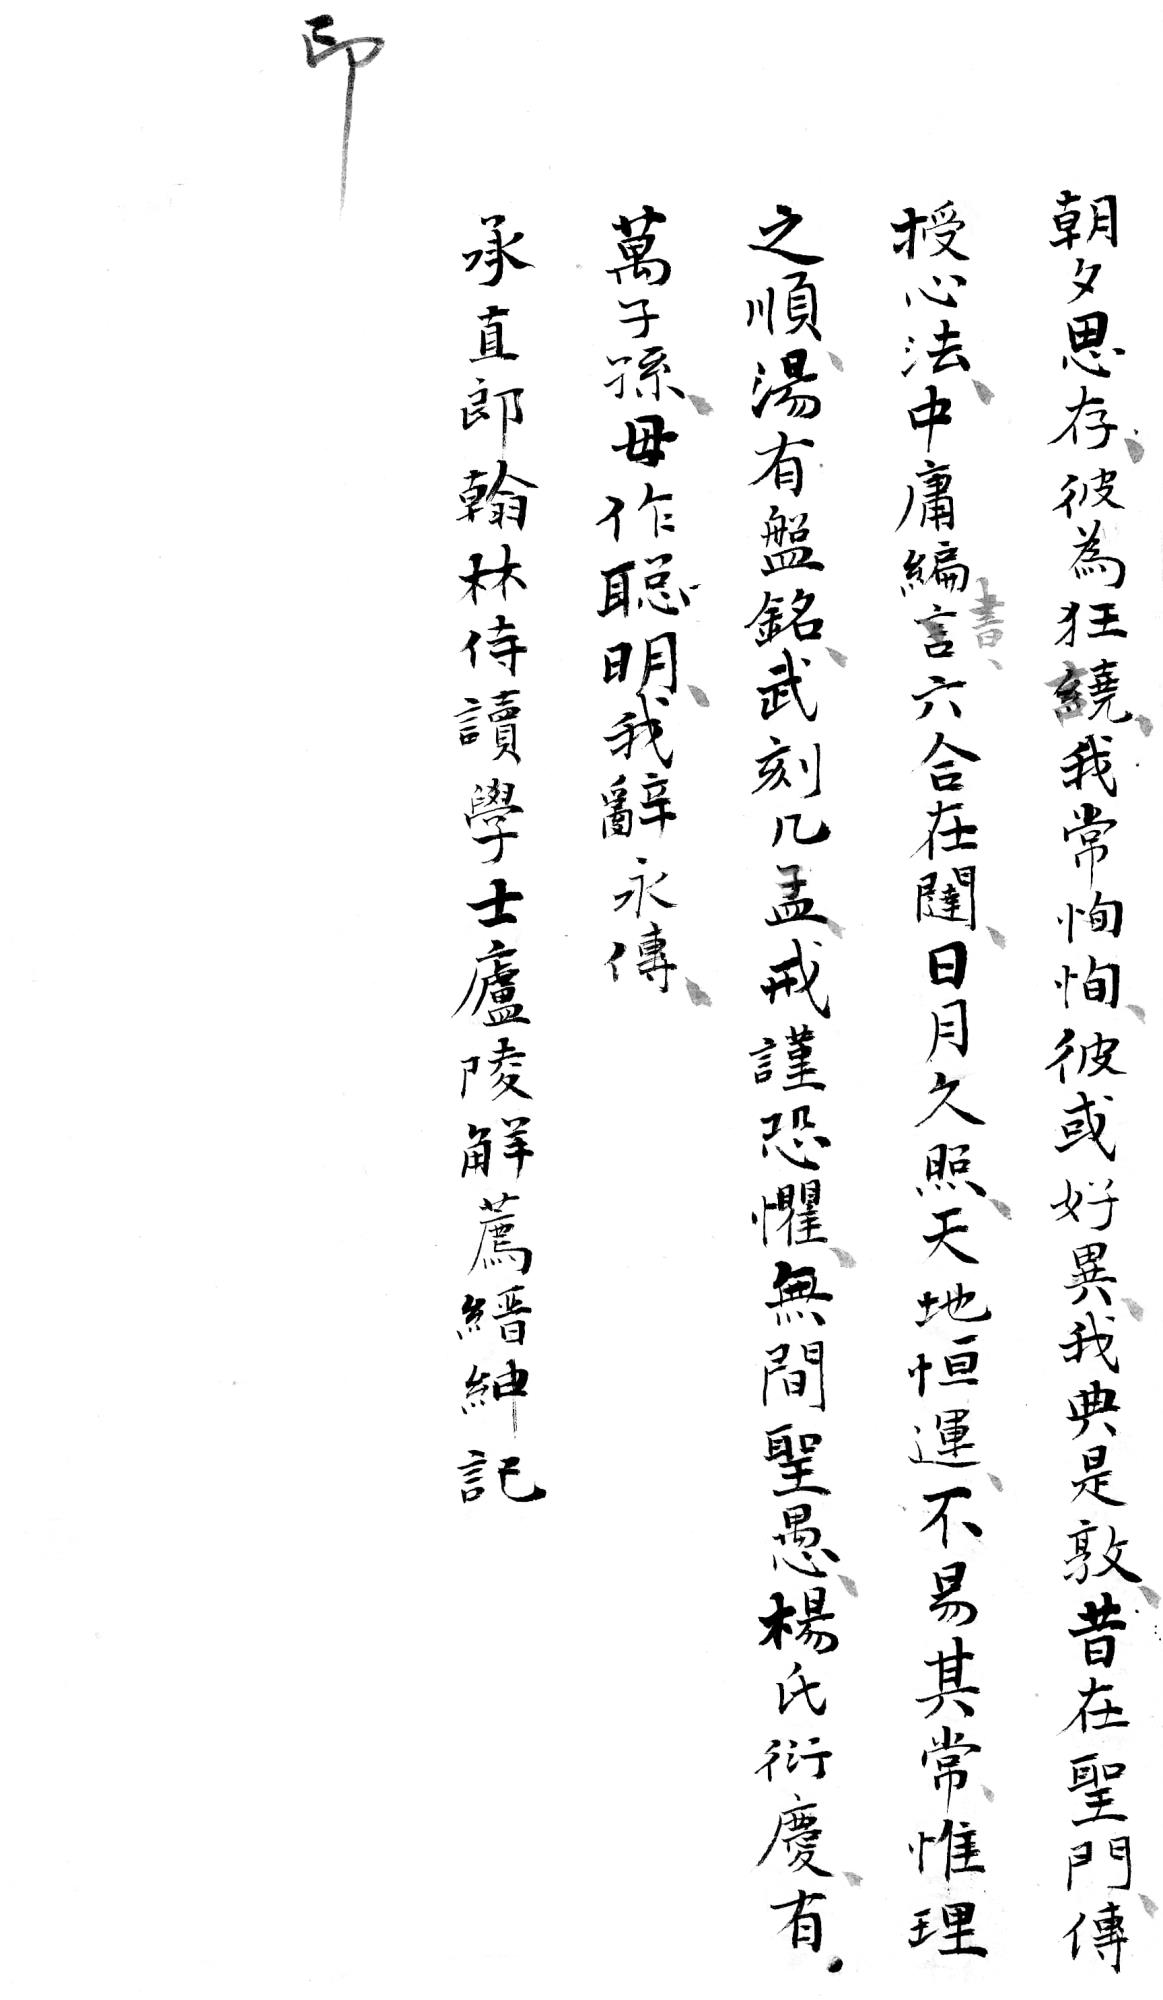 朝夕思存、彼為狂譊、我常恂恂、彼或好異、我典是敦、昔在聖門、傳
授心法、中庸編書、六合在闥、日月久照、天地恒運、不易其常、惟理
之順、湯有盤銘、武刻几盂、戒謹恐懼、無間聖愚、楊氏衍慶、有
萬子孫、毋作聰明、我辭永傳、
承直郎翰林侍讀學士廬陵解薦縉紳記
印